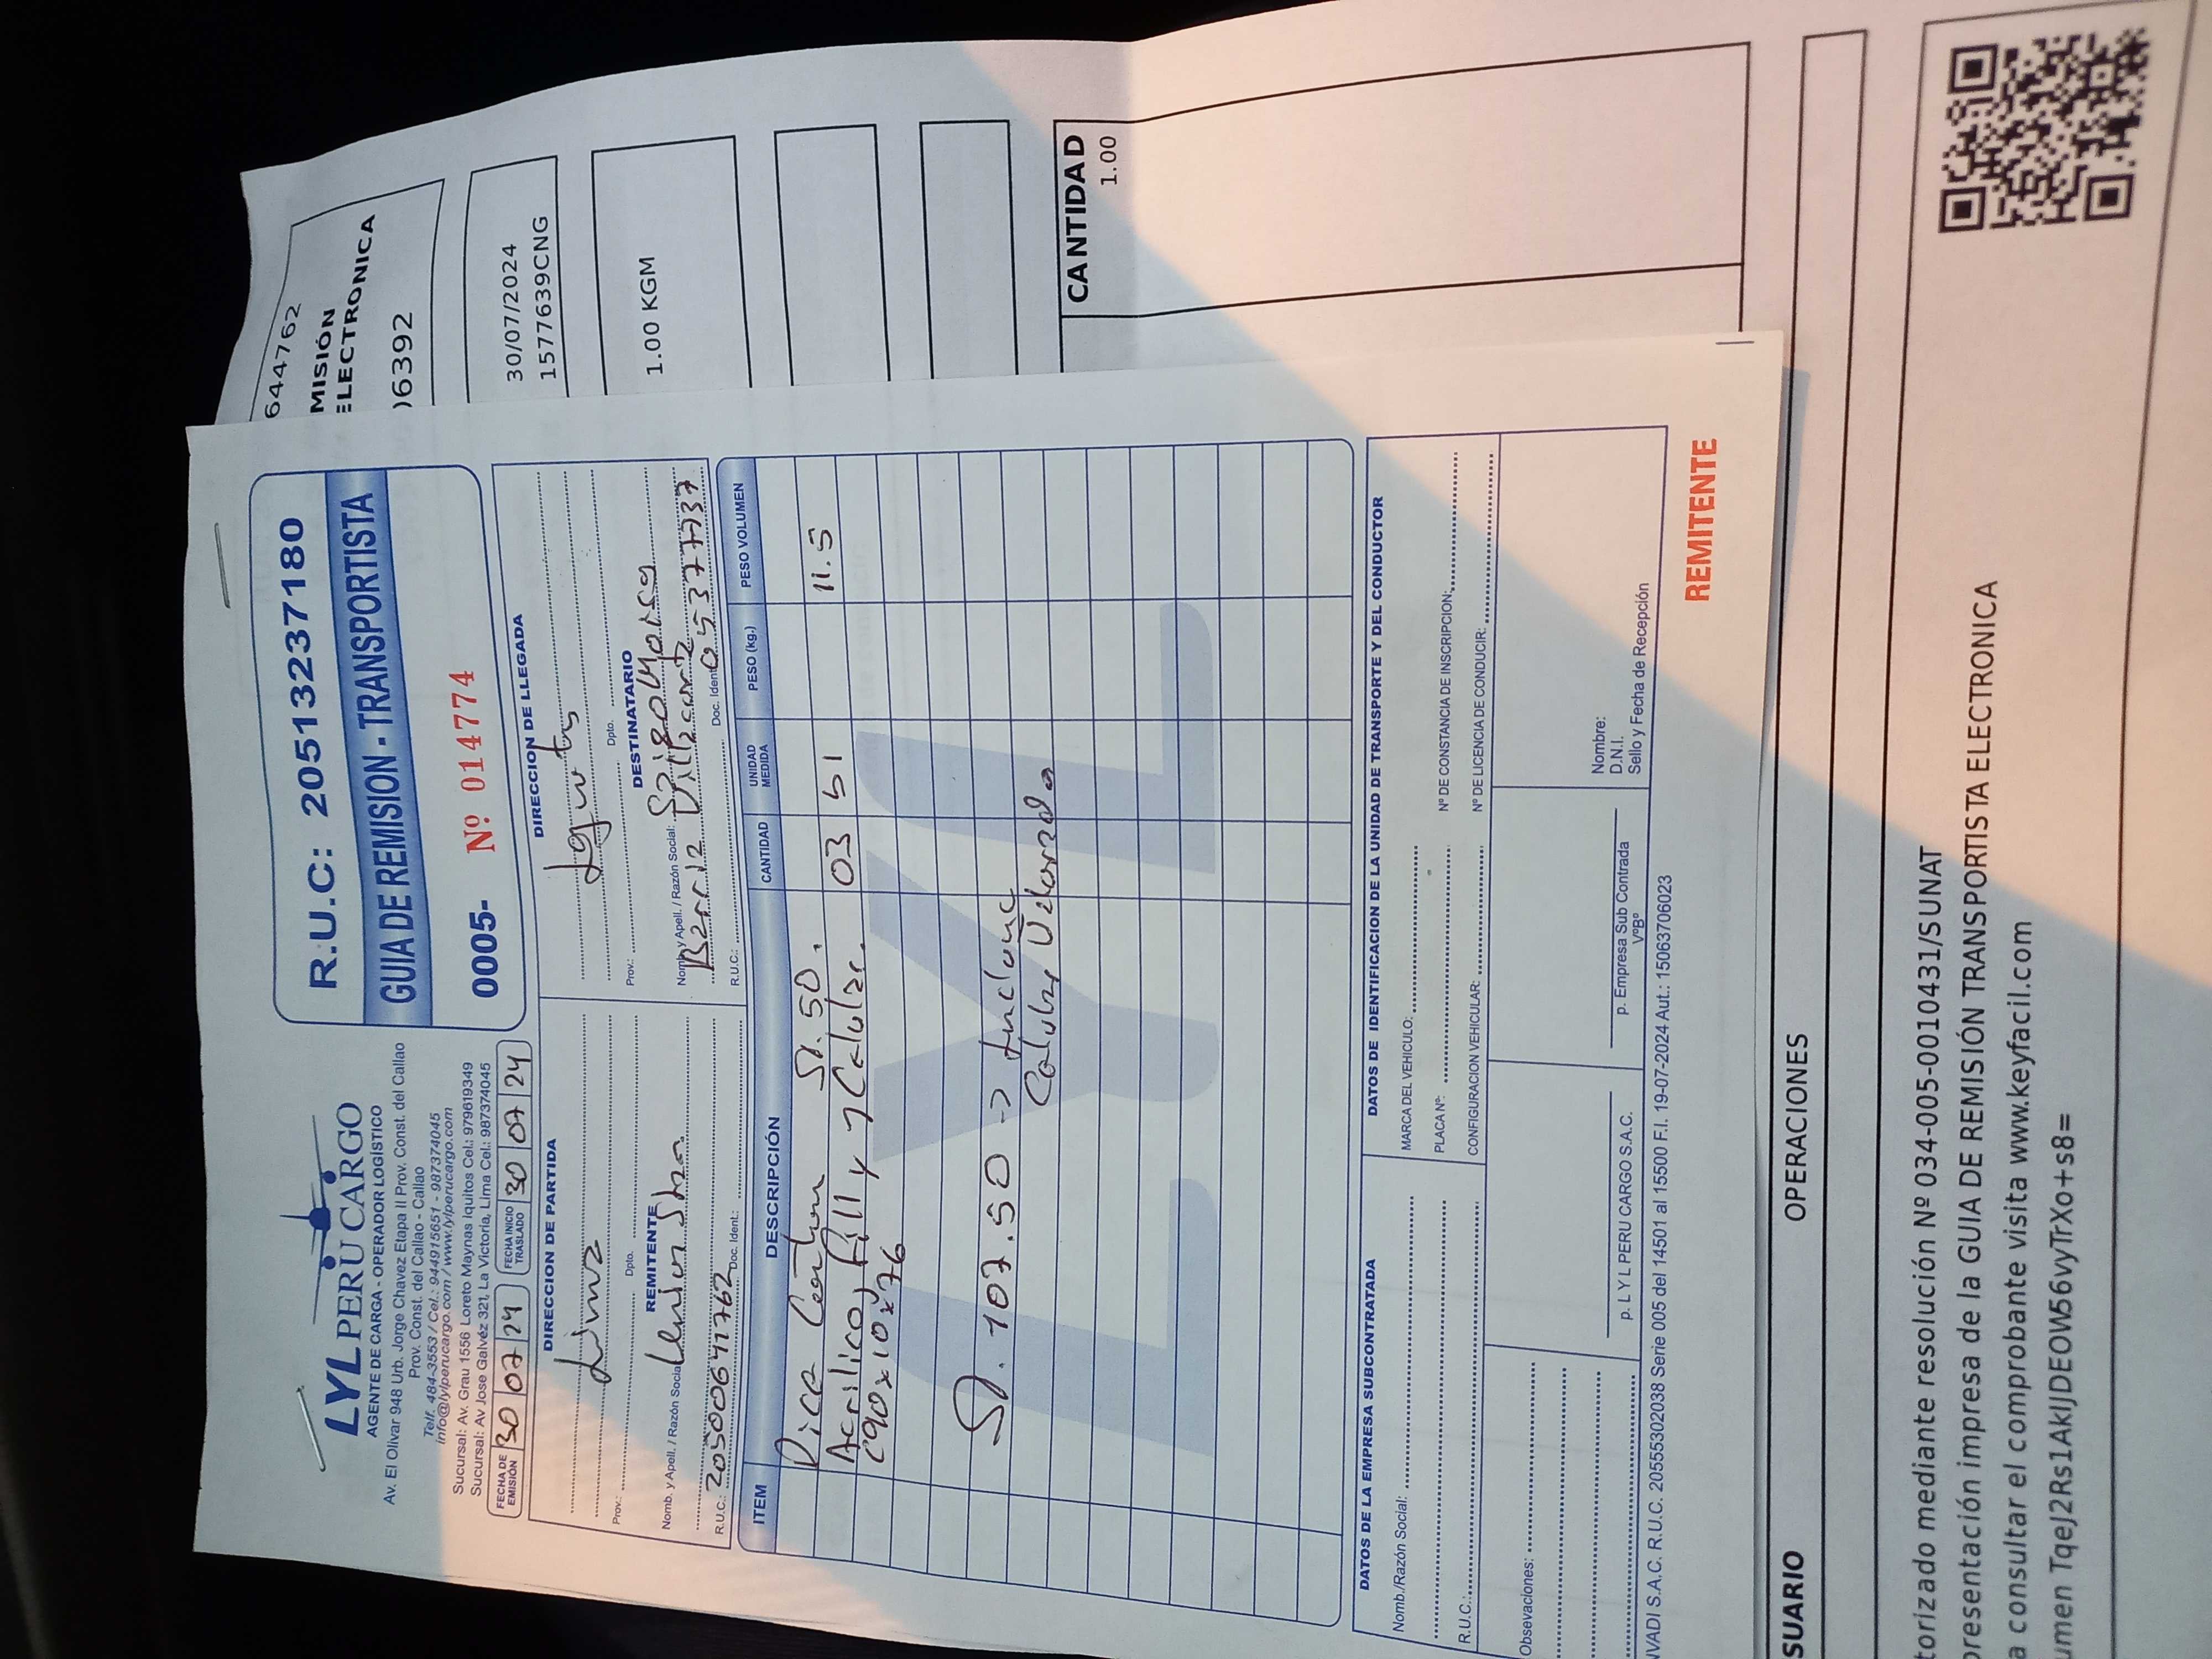 LYL PERU CARGO
AGENTE DE CARGA - OPERADOR LOGÍSTICO
Av. El Olivar 948 Urb. Jorge Chavez Etapa II Prov. Const. del Callao
Prov. Const. del Callao - Callao
Telf. 484-3553 / Cel.: 944915651 - 987374045
info@lylperucargo.com / www.lylperucargo.com
Sucursal: Av. Grau 1556 Loreto Maynas Iquitos Cel.: 979619349
Sucursal: Av Jose Galvéz 321, La Victoria, Lima Cel.: 987374045
R.U.C: 20513237180
GUIA DE REMISION - TRANSPORTISTA
0005- Nº 014774
FECHA DE EMISIÓN 30 07 24
FECHA INICIO TRASLADO 30 07 24
DIRECCION DE PARTIDA
Lima
Prov.: Dpto.
DIRECCION DE LLEGADA
Iquitos
Prov.: Dpto.
REMITENTE
Nomb. y Apell. / Razón Social:
R.U.C.: Doc. Ident.:
DESTINATARIO
Nomb. y Apell. / Razón Social:
R.U.C.: Doc. Ident. 05377737
ITEM DESCRIPCIÓN CANTIDAD UNIDAD MEDIDA PESO (kg.) PESO VOLUMEN
Dice Conten S/. 50.
Acrilico, fill y 7 Celular. 03 bl 11.5
C90x10x76
S/. 107.50 -> Incluye
Celular Valorado
LYL
DATOS DE LA EMPRESA SUBCONTRATADA
Nomb./Razón Social:
R.U.C.:
DATOS DE IDENTIFICACION DE LA UNIDAD DE TRANSPORTE Y DEL CONDUCTOR
MARCA DEL VEHICULO:
PLACA Nº: Nº DE CONSTANCIA DE INSCRIPCION:
CONFIGURACION VEHICULAR: Nº DE LICENCIA DE CONDUCIR:
Obsevaciones:
p. L Y L PERU CARGO S.A.C.
p. Empresa Sub Contrada
VºBº
Nombre:
D.N.I.
Sello y Fecha de Recepción
IVADI S.A.C. R.U.C. 20555302038 Serie 005 del 14501 al 15500 F.I. 19-07-2024 Aut.: 15063706023
REMITENTE
644762
MISIÓN
ELECTRONICA
06392
30/07/2024
1577639CNG
1.00 KGM
CANTIDAD
1.00
SUARIO OPERACIONES
torizado mediante resolución Nº 034-005-0010431/SUNAT
presentación impresa de la GUIA DE REMISIÓN TRANSPORTISTA ELECTRONICA
a consultar el comprobante visita www.keyfacil.com
umen TqeJ2Rs1AkIJDEOW56vyTrXo+s8=